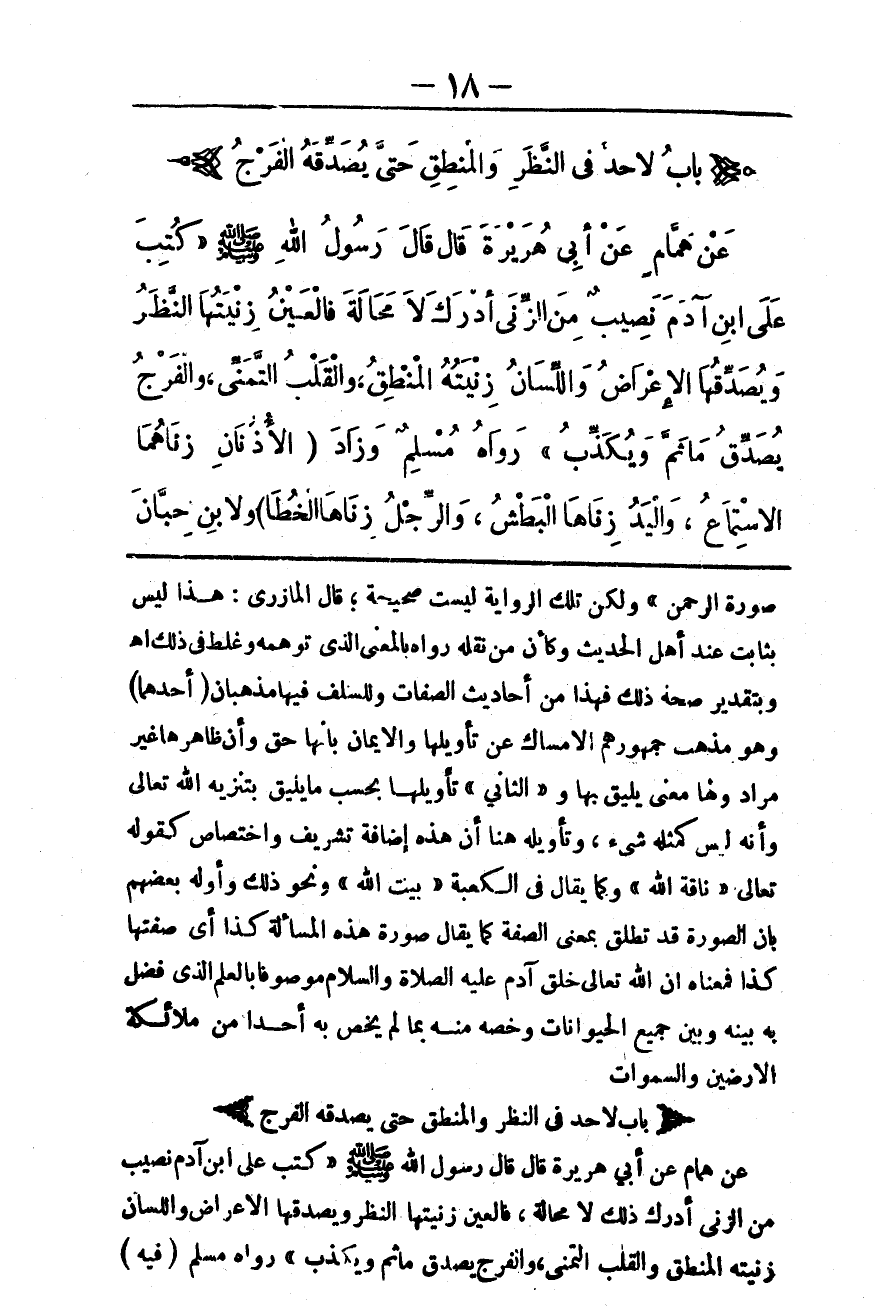 - ١٨ -
باب لاحد في النَّظَرِ وَالمَنطِقِ حَتىَّ يُصَدِّقَهُ الفَرْجُ
عَنْ هَمَّامٍ عَنْ أَبِي هُرَيْرَةَ قَالَ قَالَ رَسُولُ اللهِ ﷺ « كُتِبَ
عَلَى ابنِ آدَمَ نَصِيبٌ مِنَ الزِّنَى أدْرَكَ لاَ مَحَالَةَ فالْعَيْنُ زِنْيَتُهَا النَّظَرُ
وَيُصَدِّقُهَا الإِعْرَاضُ وَاللِّسَانُ زِنْيَتُهُ الْمَنْطِقُ، والْقَلْبُ التَّمَنِّى، والْفَرْجُ
يُصَدِّقُ مَاثَمَّ وَيُكَذِّبُ » رَوَاهُ مُسْلِمٌ وَزَادَ ( الأُذُنَانِ زِنَاهُمَا
الاسْتِمَاعُ ، وَالْيَدُ زِنَاهَا الْبَطْشُ ، وَالرِّجْلُ زِنَاهَا الخُطَا) ولابنِ حِبَّانَ
صورة الرحمن » ولكن تلك الرواية ليست صحيحة ؛ قال المازرى : هــذا ليس
بثابت عند أهل الحديث وكأن من نقله رواه بالمعنى الذى توهمه وغلط فى ذلك اه
وبتقدير صحة ذلك فهذا من أحاديث الصفات وللسلف فيها مذهبان ( أحدها )
وهو مذهب جمهورهم الامساك عن تأويلها والايمان بانها حق وأن ظاهرها غير
مراد ولها معنى يليق بها و « الثاني » تأويلهــا بحسب مايليق بتنزيه الله تعالى
وأنه ليس كمثله شىء ، وتأويله هنا أن هذه إضافة تشريف واختصاص كقوله
تعالى « ناقة الله » وكما يقال فى الكعبة « بيت الله » ونحو ذلك وأوله بعضهم
بان الصورة قد تطلق بمعنى الصفة كما يقال صورة هذه المسألة كذا أى صفتها
كذا فمعناه ان الله تعالى خلق آدم عليه الصلاة والسلام موصوفا بالعلم الذى فضل
به بينه وبين جميع الحيوانات وخصه منــه بما لم يخص به أحــدا من ملائكة
الارضين والسموات
باب لاحد فى النظر والمنطق حتى يصدقه الفرج
عن همام عن أبي هريرة قال قال رسول الله ﷺ « كتب على ابن آدم نصيب
من الزنى أدرك ذلك لا محالة ، فالعين زنيتها النظر ويصدقها الاعراض واللسان
زنيته المنطق والقلب التمنى، والفرج يصدق ماثم ويكذب » رواه مسلم ( فيه )